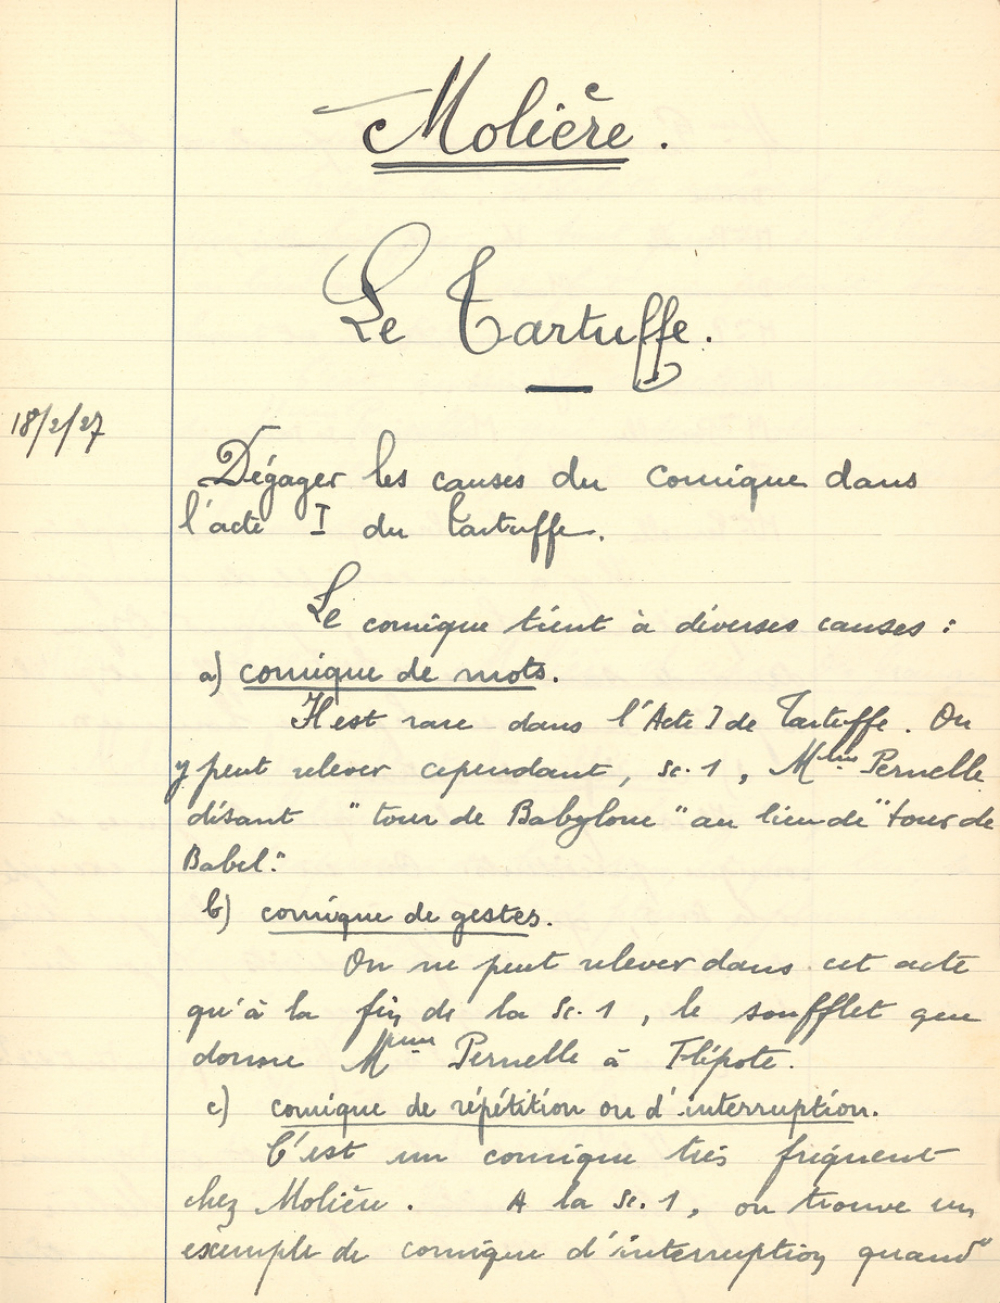 Molière.
Le Tartuffe.
18/2/27
Dégager les causes du comique dans
l'acte I du Tartuffe.
Le comique tient à diverses causes :
a) comique de mots.
Il est rare dans l'Acte I de Tartuffe. On
y peut relever cependant, sc. 1, Mme Pernelle
disant "tour de Babylone" au lieu de "tour de
Babel."
b) comique de gestes.
On ne peut relever dans cet acte
qu'à la fin de la Sc. 1, le soufflet que
donne Mme Pernelle à Flipote.
c) comique de répétition ou d'interruption.
C'est un comique très fréquent
chez Molière. A la Sc. 1, on trouve un
exemple de comique d'interruption quand